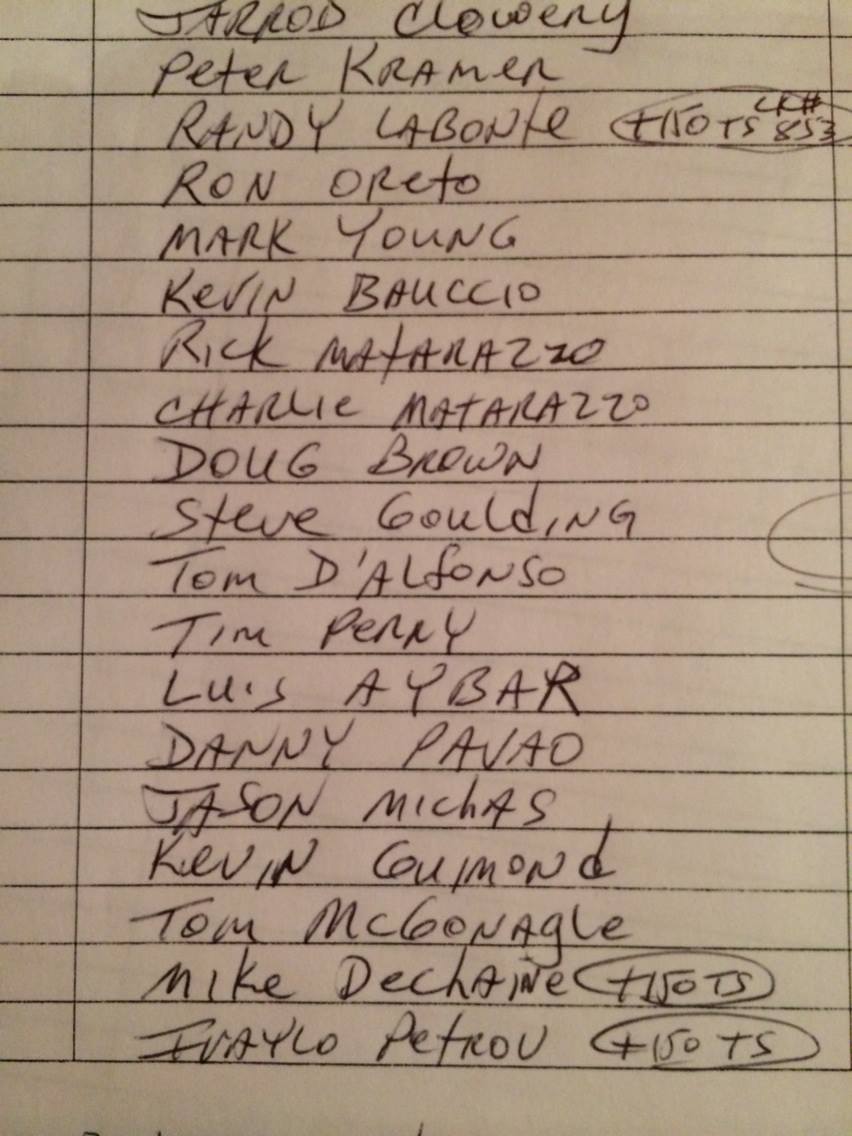 JARROD Clowery
Peter KRAMER
RANDY LABONTE +150 TS CK# 853
RON OReto
MARK YOUNG
KEVIN BAUCCIO
RICK MATARAZZO
CHARLIE MATARAZZO
DOUG BROWN
Steve GouldING
Tom D'ALfONSO
TIM PERRY
LUIS AYBAR
DANNY PAVAO
JASON MIChAS
KEVIN GUIMOND
TOM McGONAgLe
MIKe DechAINe +150 TS
IVAYLO PetROV +150 TS